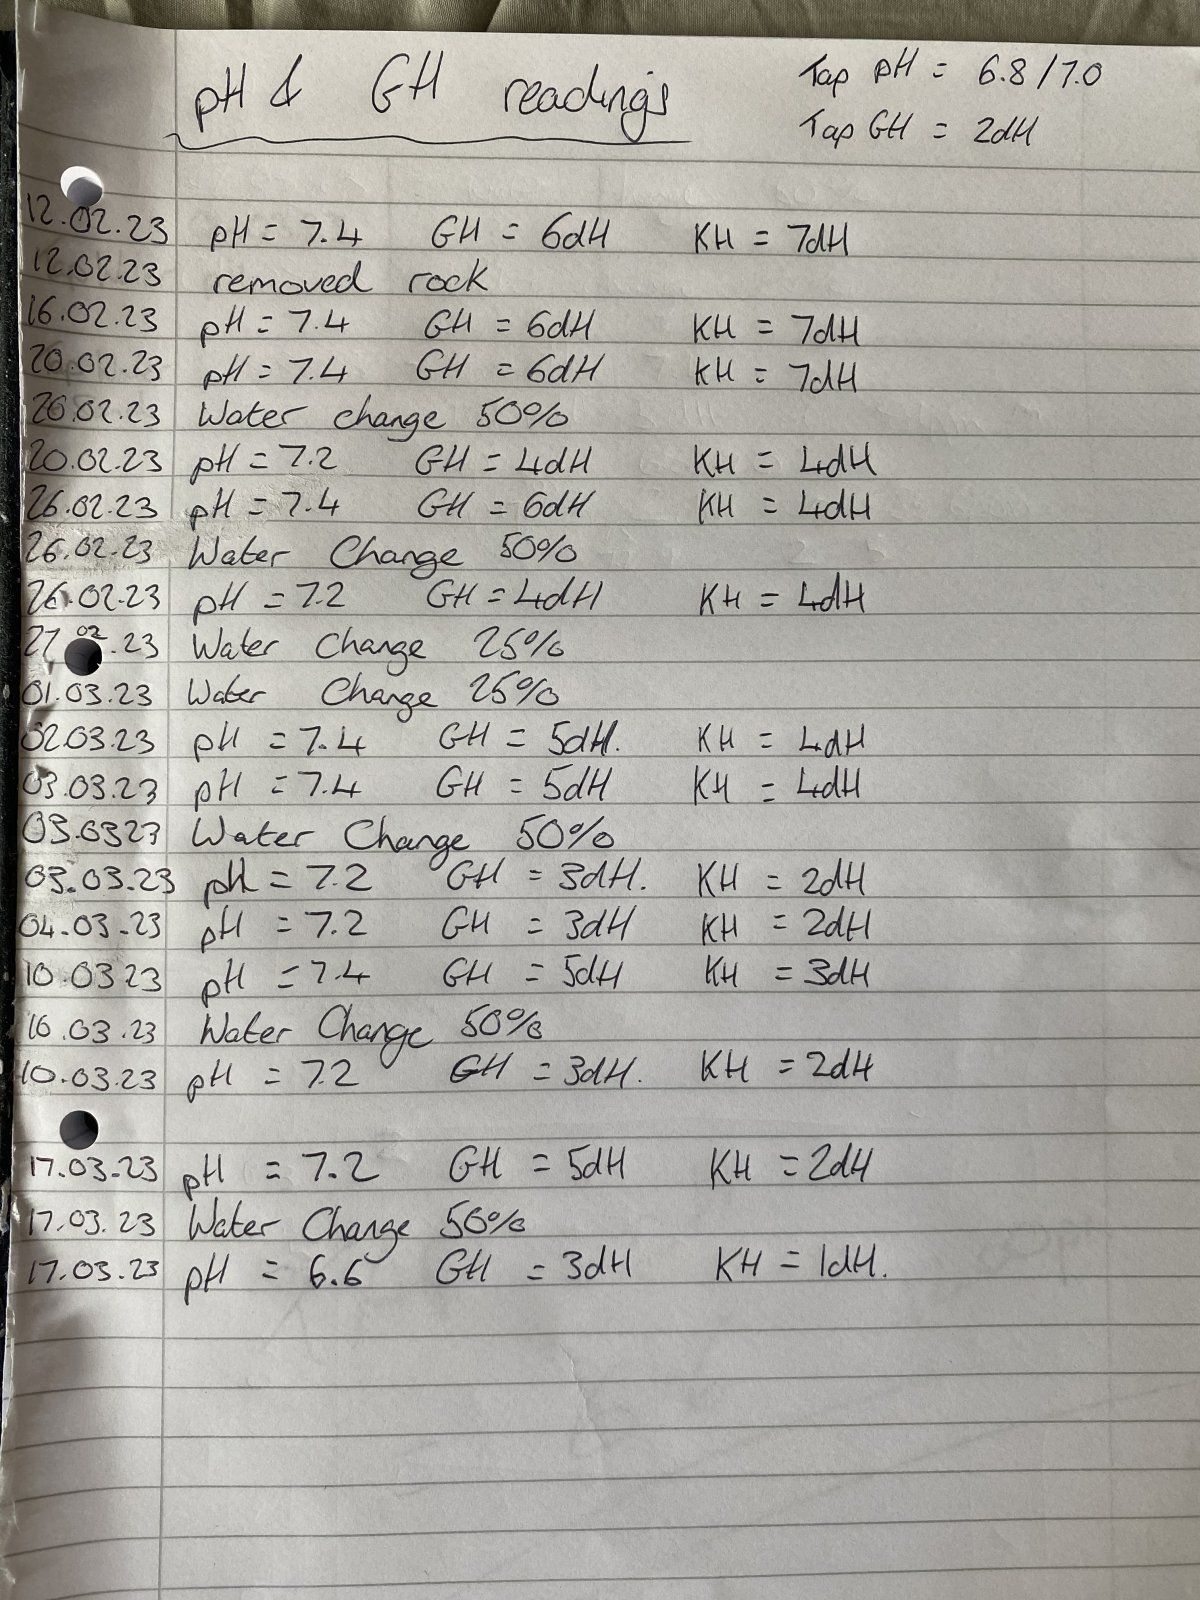 pH & GH readings
Tap pH = 6.8/7.0
Tap GH = 2dH
12.02.23 pH = 7.4 GH = 6dH KH = 7dH
12.02.23 removed rock
16.02.23 pH = 7.4 GH = 6dH KH = 7dH
20.02.23 pH = 7.4 GH = 6dH KH = 7dH
20.02.23 Water change 50%
20.02.23 pH = 7.2 GH = 4dH KH = 4dH
26.02.23 pH = 7.4 GH = 6dH KH = 4dH
26.02.23 Water Change 50%
26.02.23 pH = 7.2 GH = 4dH KH = 4dH
27.02.23 Water Change 25%
01.03.23 Water Change 25%
02.03.23 pH = 7.4 GH = 5dH. KH = 4dH
03.03.23 pH = 7.4 GH = 5dH KH = 4dH
03.0323 Water Change 50%
03.03.23 pH = 7.2 GH = 3dH. KH = 2dH
04.03.23 pH = 7.2 GH = 3dH KH = 2dH
10.03.23 pH = 7.4 GH = 5dH KH = 3dH
10.03.23 Water Change 50%
10.03.23 pH = 7.2 GH = 3dH. KH = 2dH
17.03.23 pH = 7.2 GH = 5dH KH = 2dH
17.03.23 Water Change 50%
17.03.23 pH = 6.6 GH = 3dH KH = 1dH.